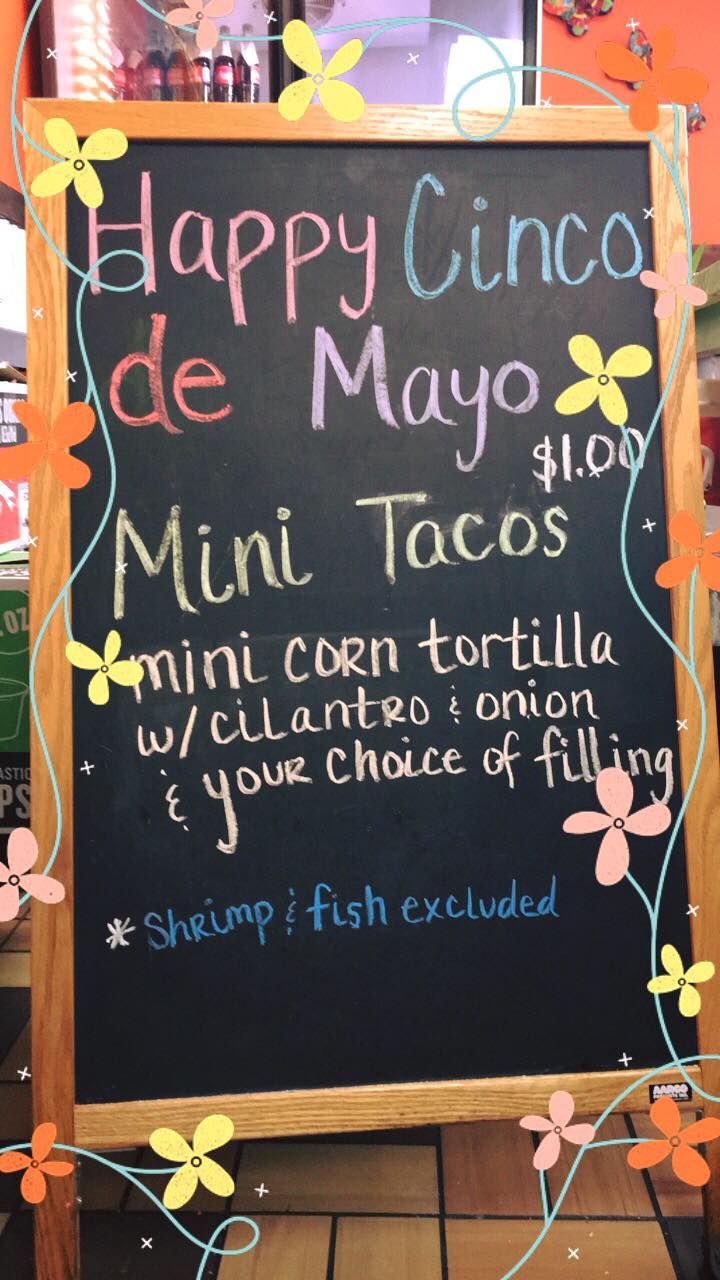 Happy Cinco
de Mayo
$1.00
Mini Tacos
mini corn tortilla
w/cilantro & onion
& your choice of filling
* Shrimp & fish excluded
AARCO